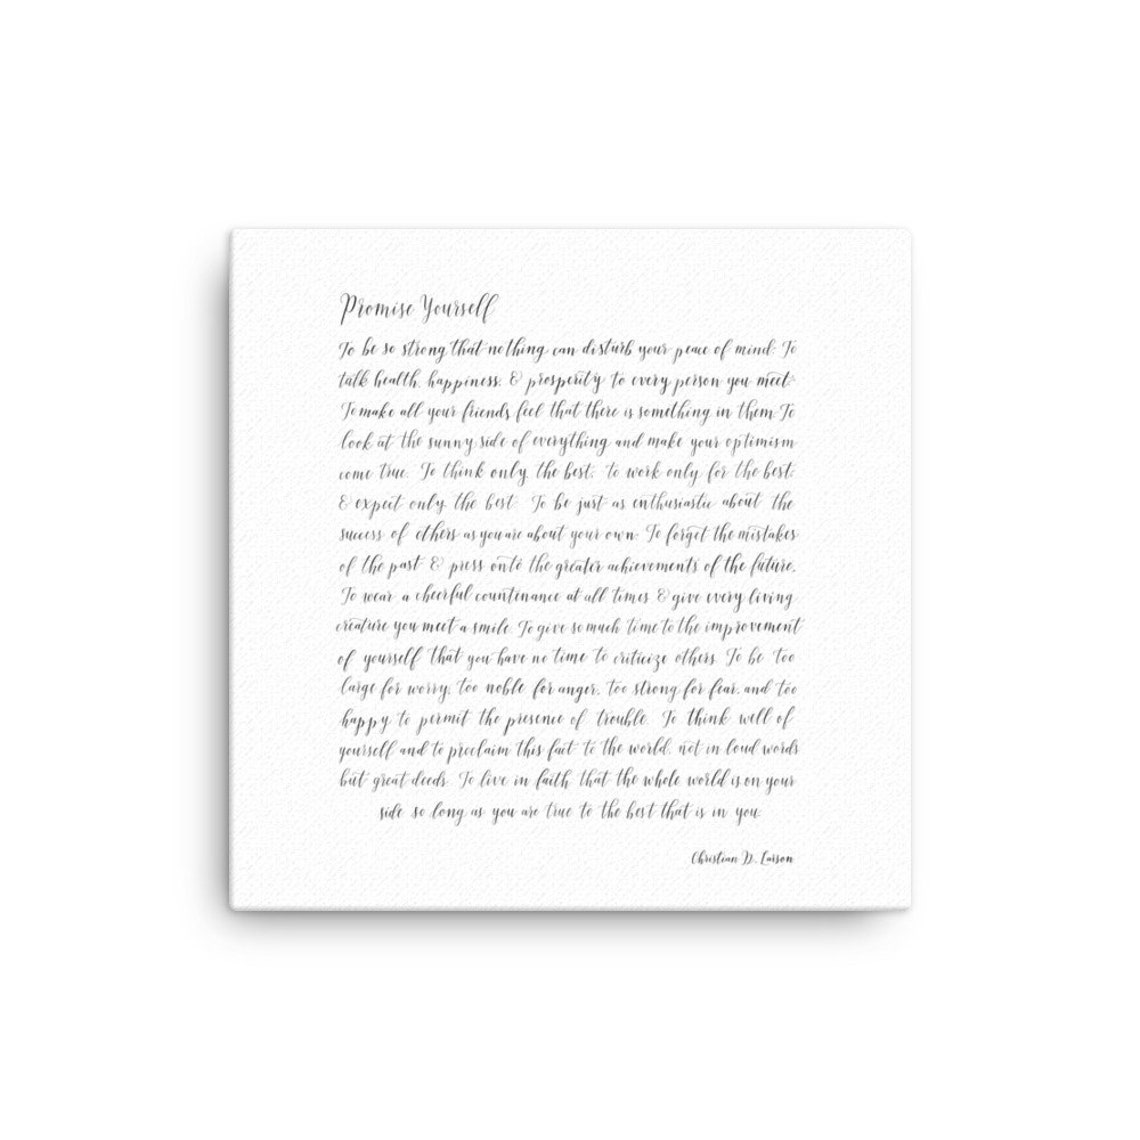 Promise Yourself
To be so strong that nothing can disturb your peace of mind. To
talk health, happiness, & prosperity to every person you meet.
To make all your friends feel that there is something in them. To
look at the sunny side of everything and make your optimism
come true. To think only the best, to work only for the best,
& expect only the best. To be just as enthusiastic about the
success of others as you are about your own. To forget the mistakes
of the past & press onto the greater achievements of the future.
To wear a cheerful countinance at all times & give every living
creature you meet a smile. To give so much time to the improvement
of yourself that you have no time to criticize others. To be too
large for worry, too noble for anger, too strong for fear, and too
happy to permit the presence of trouble. To think well of
yourself and to proclaim this fact to the world, not in loud words
but great deeds. To live in faith that the whole world is on your
side so long as you are true to the best that is in you.
Christian D. Larson